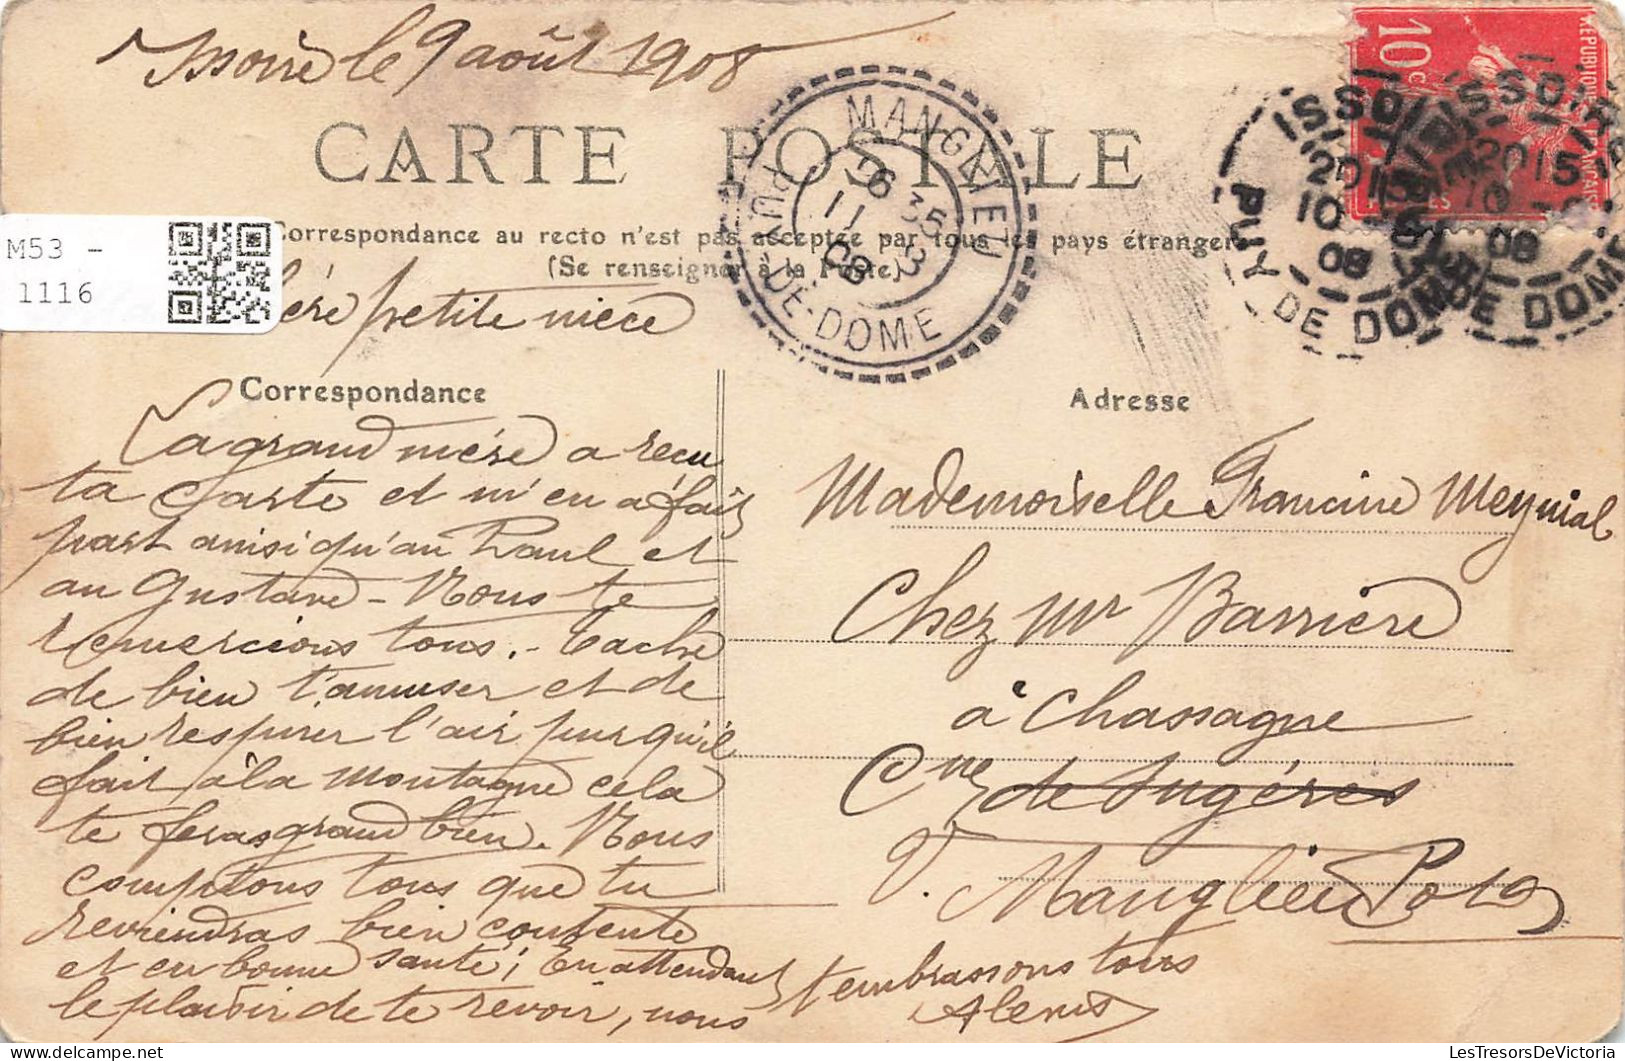 Issoire le 9 août 1908
CARTE POSTALE
Correspondance au recto n'est pas acceptée par tous les pays étrangers
(Se renseigner à la Poste)
M53 -
1116
MANGLIEU
PUY-DE-DOME
16 35
11 8
08
10c
REPUBLIQUE FRANÇAISE
ISSOIRE
2015
10-8
08
PUY DE DOME
ISSOIRE
2015
10-8
08
PUY DE DOME
chère petite nièce
Correspondance
Ta grand mère a reçu
ta carte et m'en a fait
part ainsi qu'au Paul et
au Gustave - Nous te
remercions tous. - Tache
de bien t'amuser et de
bien respirer l'air pur qu'il
fait à la montagne cela
te feras grand bien. Nous
comptons tous que tu
reviendras bien contente
et en bonne santé; En attendant
le plaisir de te revoir, nous
t'embrassons tous
Alexis
Adresse
Mademoiselle Francine Meynial
Chez Mr Barrière
à Chassagne
Cne de Sugères
V. Manglieu P-D-D
LesTresorsDeVictoria